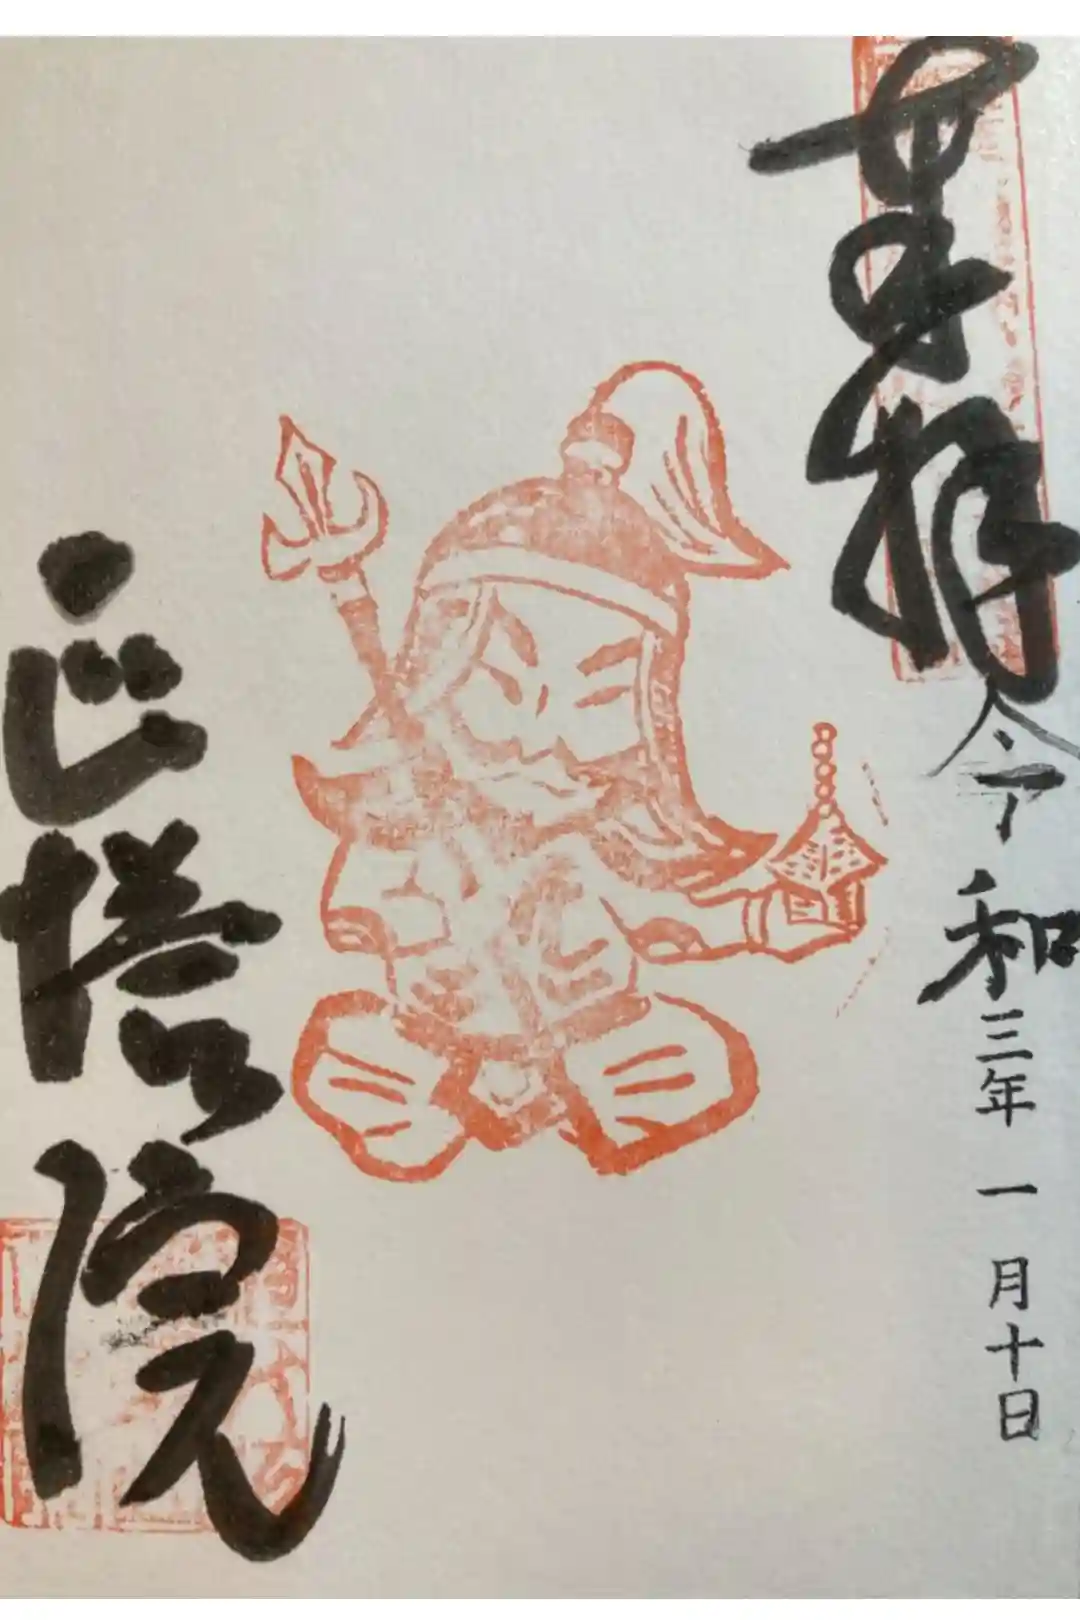 奉拝
令和三年一月十日
塔院